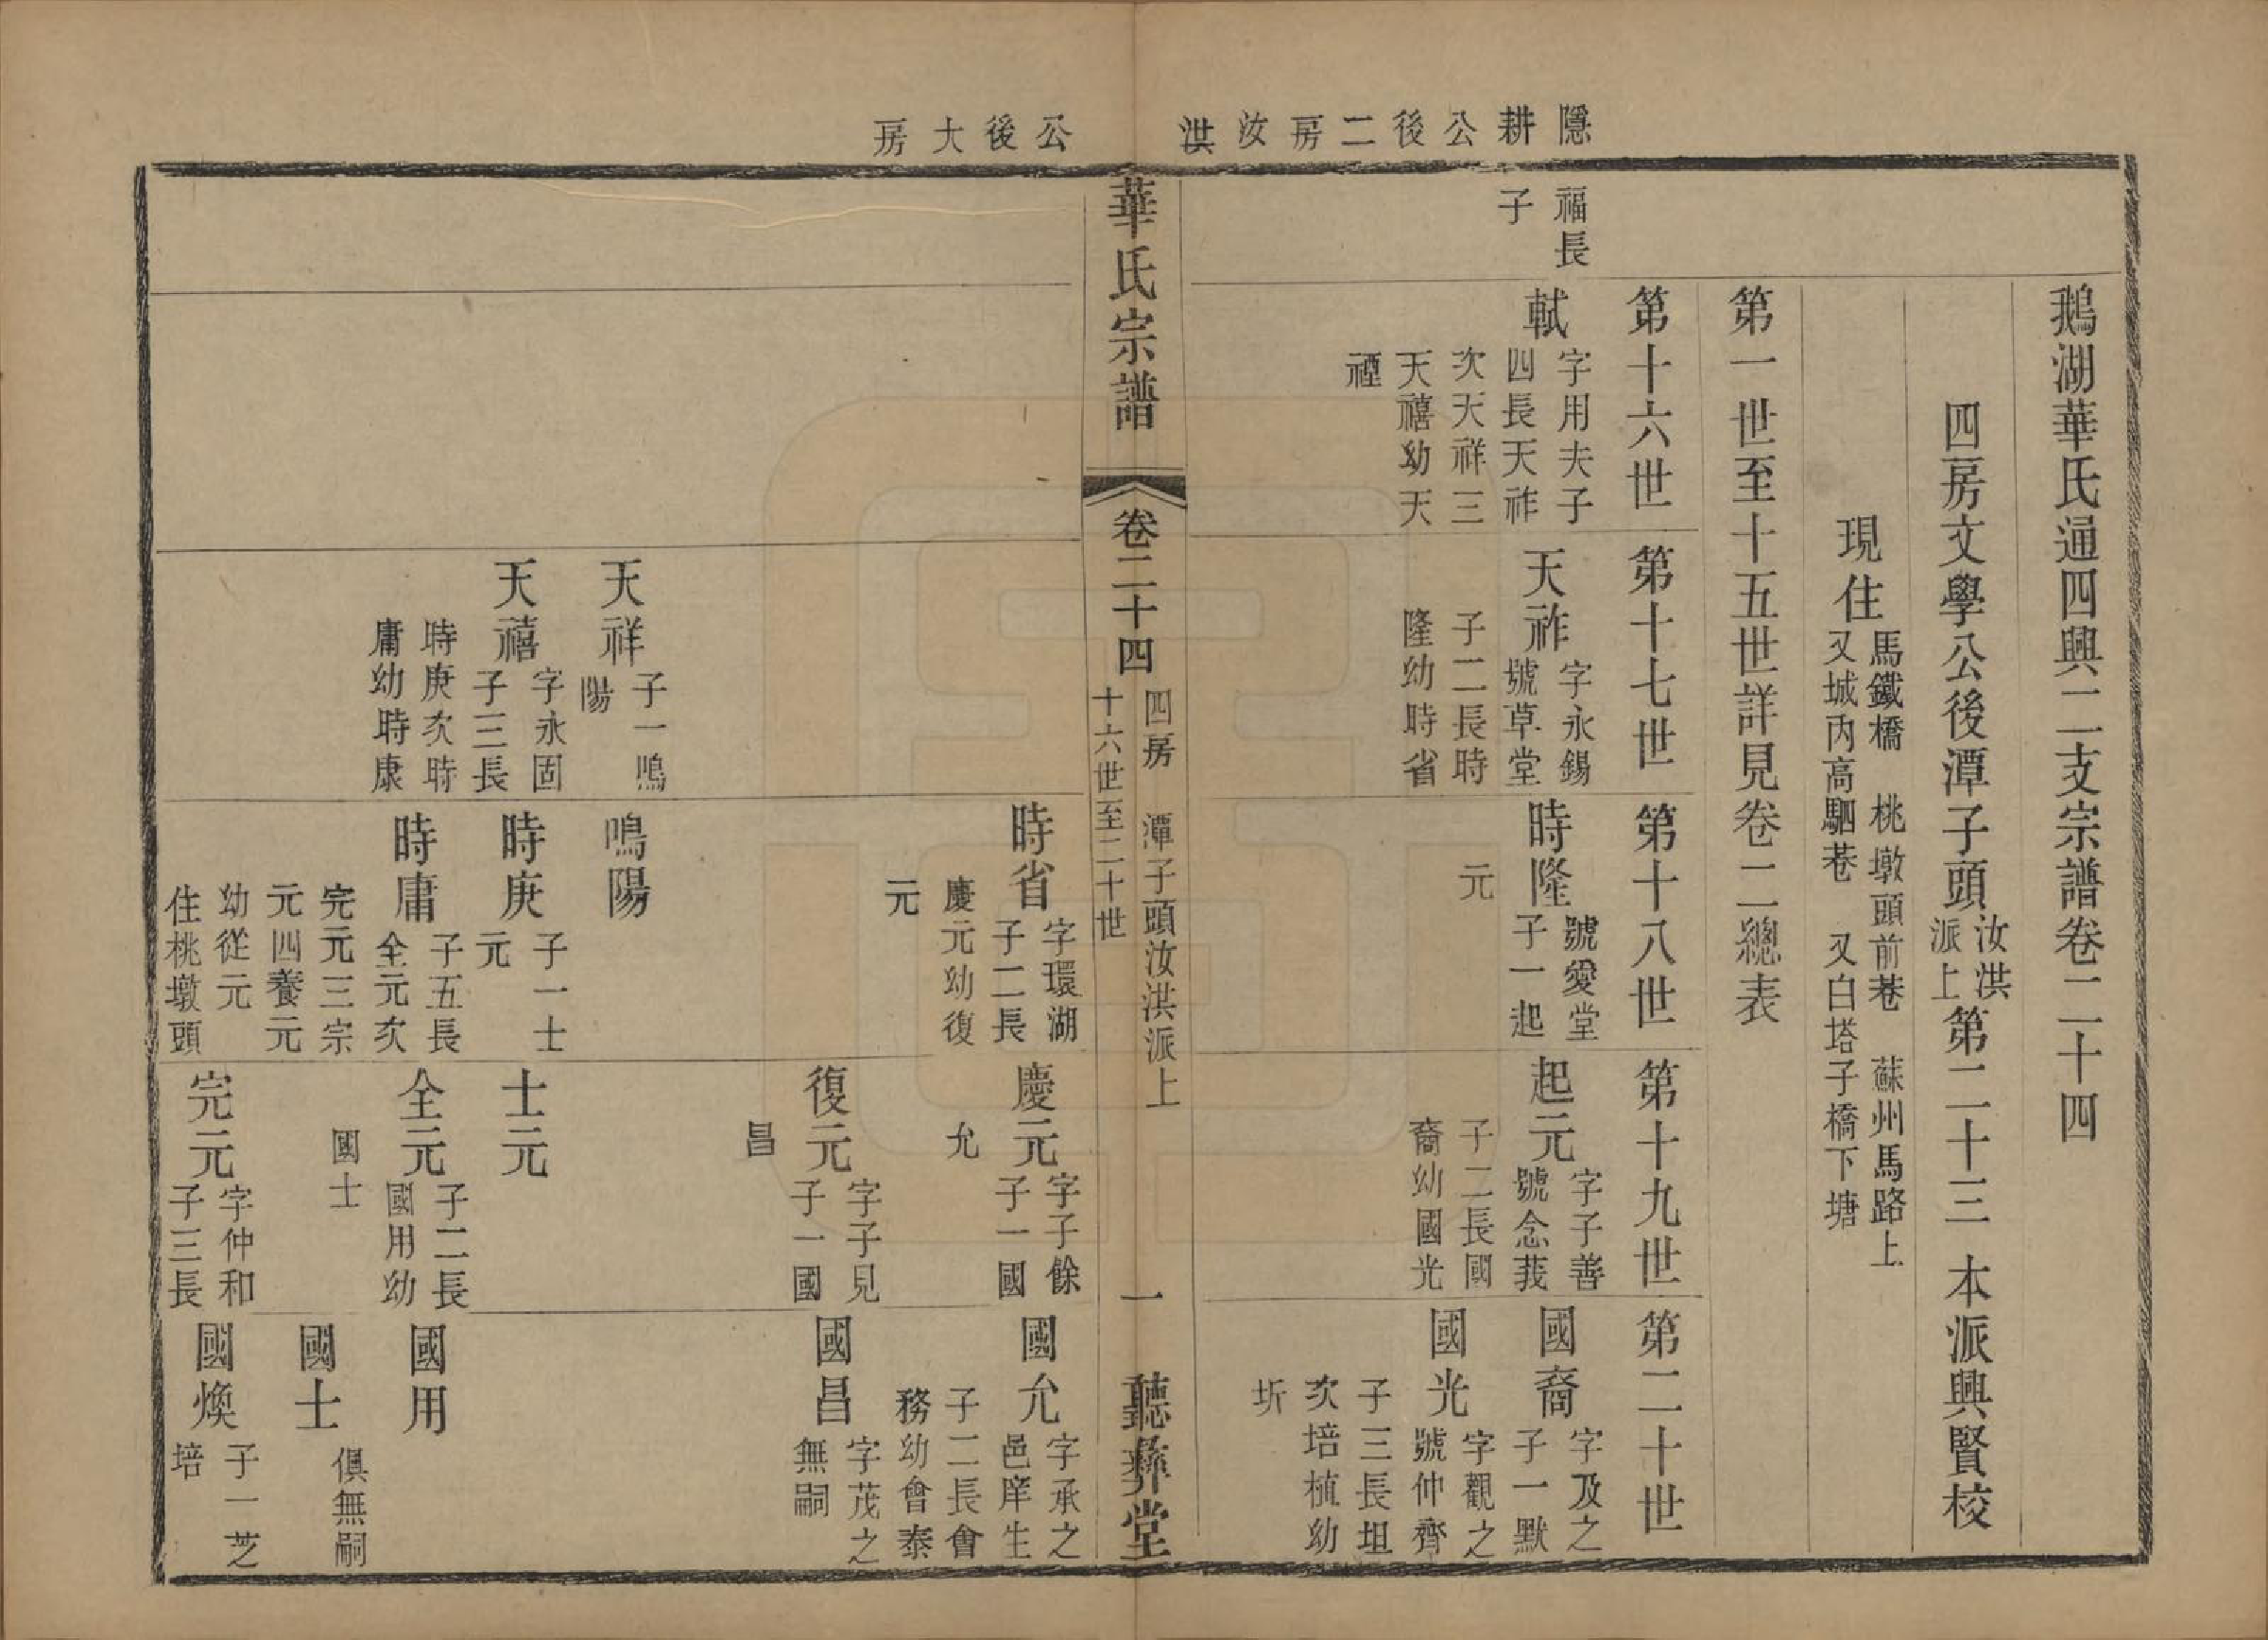 隱耕公後二房汝洪
公後大房
鵝湖華氏通四興二支宗譜卷二十四
四房文學公後潭子頭
汝洪
派上
第二十三 本派興賢校
現住
馬鐵橋 桃墩頭前巷 蘇州馬路上
又城內高駟巷 又白塔子橋下塘
第一世至十五世詳見卷二總表
第十六世
第十七世
第十八世
第十九世
第二十世
福長
子
軾
字用夫子
四長天祚
次天祥三
天禧幼天
禋
天祚
字永錫
號草堂
子二長時
隆幼時省
時隆
號愛堂
子一起
元
起元
字子善
號念莪
子二長國
裔幼國光
國裔
字及之
子一默
國光
字觀之
號仲齊
子三長坦
次培植幼
圻
華氏宗譜
卷二十四
四房 潭子頭汝洪派上
十六世至二十世
一
聽彝堂
時省
字環湖
子二長
慶元幼復
元
慶元
字子餘
子一國
允
國允
字承之
邑庠生
子二長會
務幼會泰
復元
字子見
子一國
昌
國昌
字茂之
無嗣
天祥
子一鳴
陽
鳴陽
天禧
字永固
子三長
時庚次時
庸幼時康
時庚
子一士
元
士元
時庸
子五長
全元次
完元三宗
元四養元
幼從元
住桃墩頭
全元
子二長
國用幼
國士
國用
國士
俱無嗣
完元
字仲和
子三長
國煥
子一芝
培